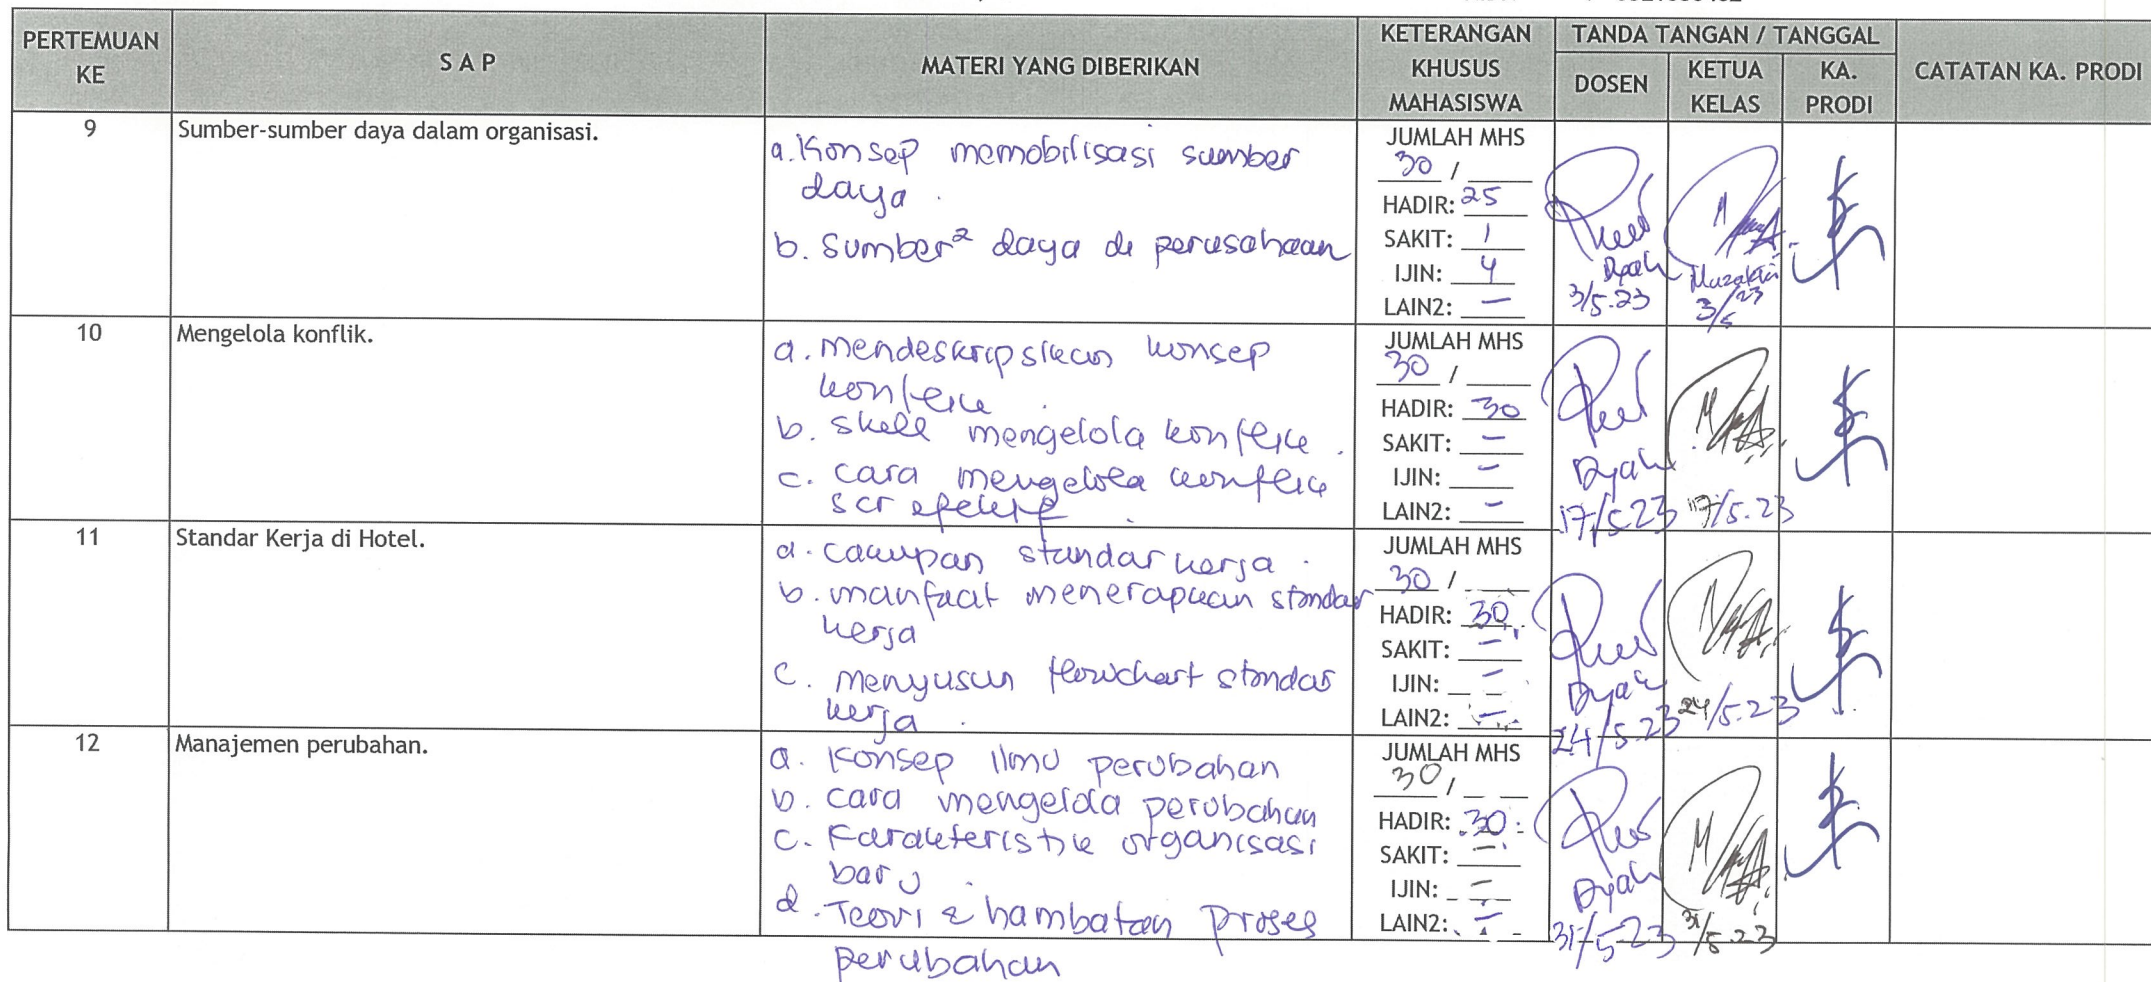 PERTEMUAN KE
S A P
MATERI YANG DIBERIKAN
KETERANGAN KHUSUS MAHASISWA
TANDA TANGAN / TANGGAL
DOSEN
KETUA KELAS
KA. PRODI
CATATAN KA. PRODI
9
Sumber-sumber daya dalam organisasi.
a. Konsep memobilisasi sumber
daya.
b. Sumber² daya di perusahaan
JUMLAH MHS
30 /
HADIR: 25
SAKIT: 1
IJIN: 4
LAIN2: -
Dyah
3/5-23
Muzakki
3/5 23
10
Mengelola konflik.
a. mendeskripsikan konsep
konflik.
b. skill mengelola konflik.
c. cara mengelola konflik
scr efektif.
JUMLAH MHS
30 /
HADIR: 30
SAKIT: -
IJIN: -
LAIN2: -
Dyah
17/5 23
17/5-23
11
Standar Kerja di Hotel.
a. cakupan standar kerja.
b. manfaat menerapkan standar
kerja
c. menyusun flowchart standar
kerja.
JUMLAH MHS
30 /
HADIR: 30
SAKIT: -
IJIN: -
LAIN2: -
Dyah
24/5-23
24/5-23
12
Manajemen perubahan.
a. Konsep ilmu perubahan
b. cara mengelola perubahan
c. Karakteristik organisasi
baru.
d. Teori & hambatan proses
perubahan
JUMLAH MHS
30 /
HADIR: 30
SAKIT: -
IJIN: -
LAIN2: -
Dyah
31/5-23
31/5-23